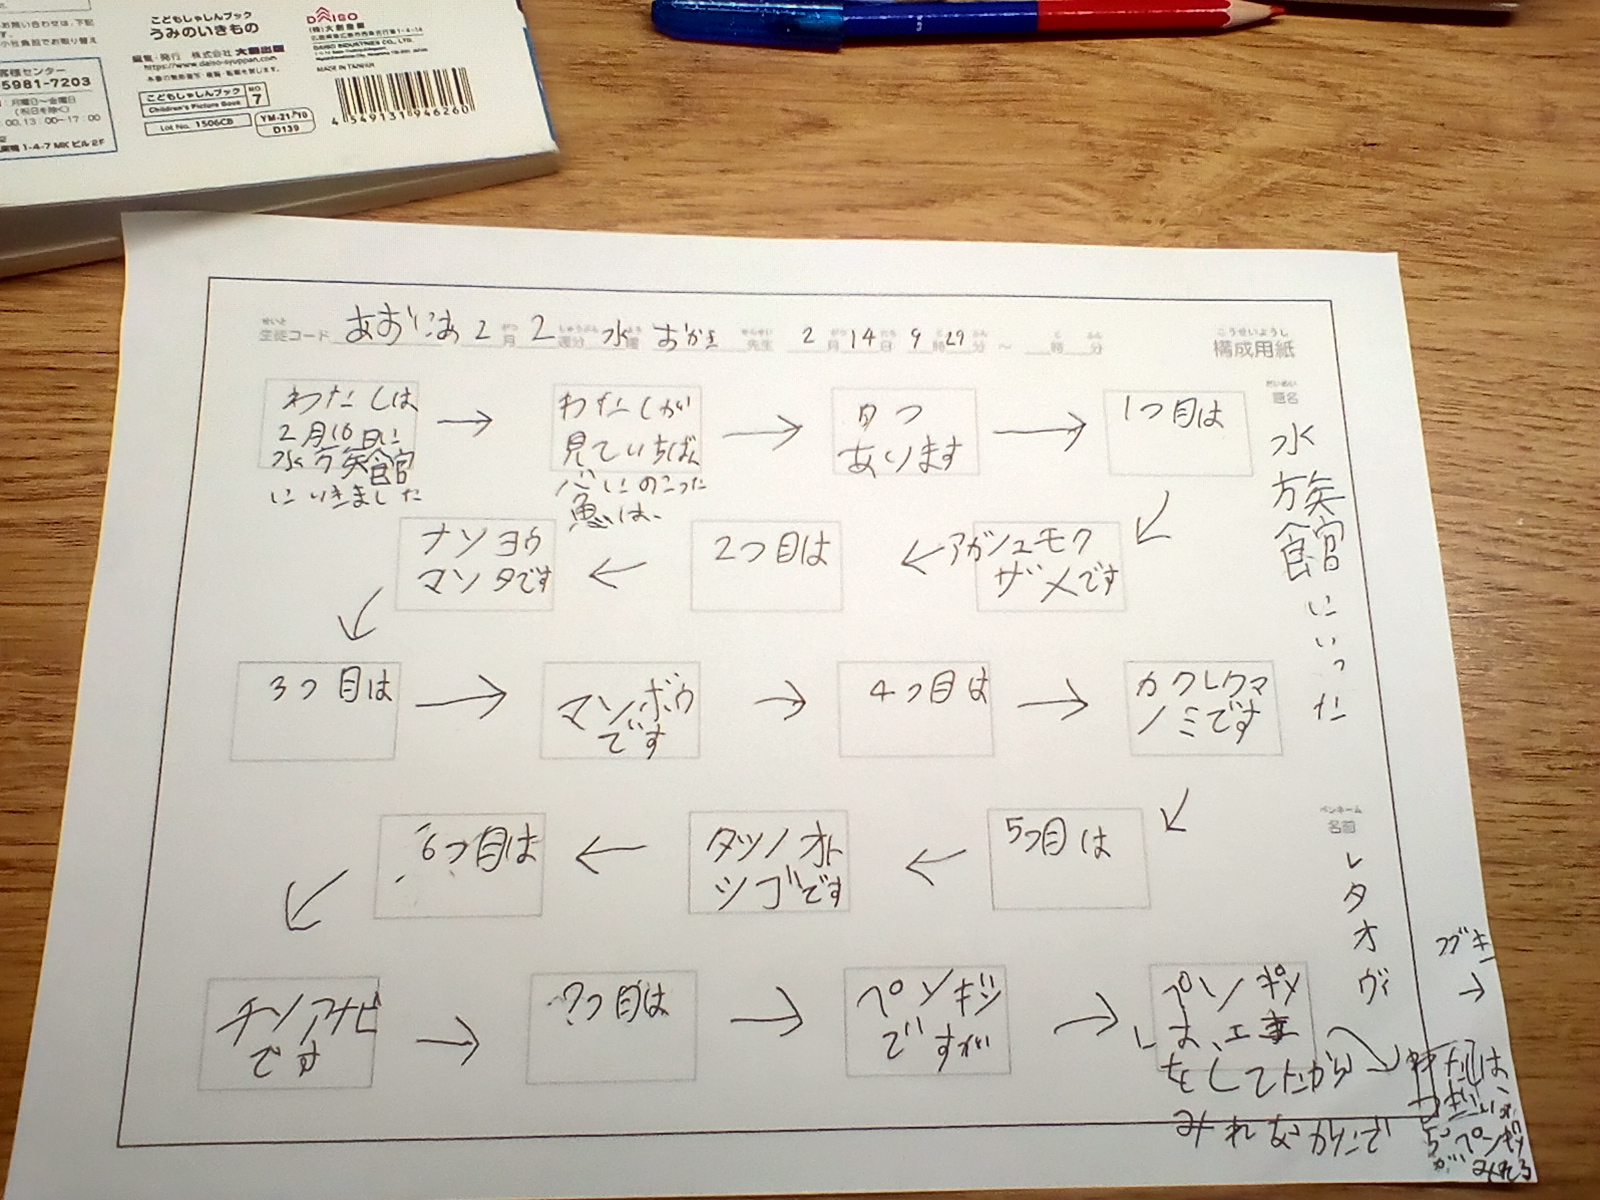 こどもしゃしんブック
うみのいきもの
編集・発行 株式会社 大創出版
https://www.daiso-syuppan.com
こどもしゃしんブック
Children's Picture Book
NO 7
Lot No. 1506CB
YM-21/10
D139
DAISO
(株)大創産業
DAISO INDUSTRIES CO., LTD.
MADE IN TAIWAN
4 549131 946260
お問い合わせは、下記
客様センター
5981-7203
月曜日〜金曜日
(祝日を除く)
00、13:00〜17:00
1-4-7 MKビル 2F
構成用紙
こうせいようし
生徒コード あおにあ 2月 2週分 水曜 おかき 先生 2月14日 9時29分 〜 時 分
題名
水族館にいった
ペンネーム
名前
レタオヴィ
わたしは
2月10日に
水族館
にいきました
→
わたしが
見ていちばん
心にのこった
魚は、
→
7つ
あります
→
1つ目は
アカシュモク
ザメです
←
2つ目は
←
ナンヨウ
マンタです
3つ目は
→
マンボウ
です
→
4つ目は
→
カクレクマ
ノミです
5つ目は
←
タツノオト
シゴです
←
6つ目は
チンアナゴ
です
→
7つ目は
→
ペンギン
ですが
→
ペンギン
は、工事
をしてたから
みれなかたで
ツヅキ
→